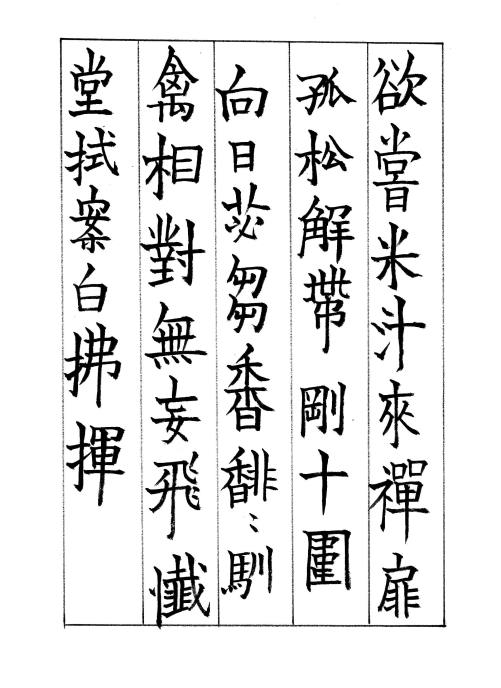 欲嘗米汁來禪扉
孤松解帶剛十圍
向日苾芻香馡〻馴
禽相對無妄飛懺
堂拭案白拂揮